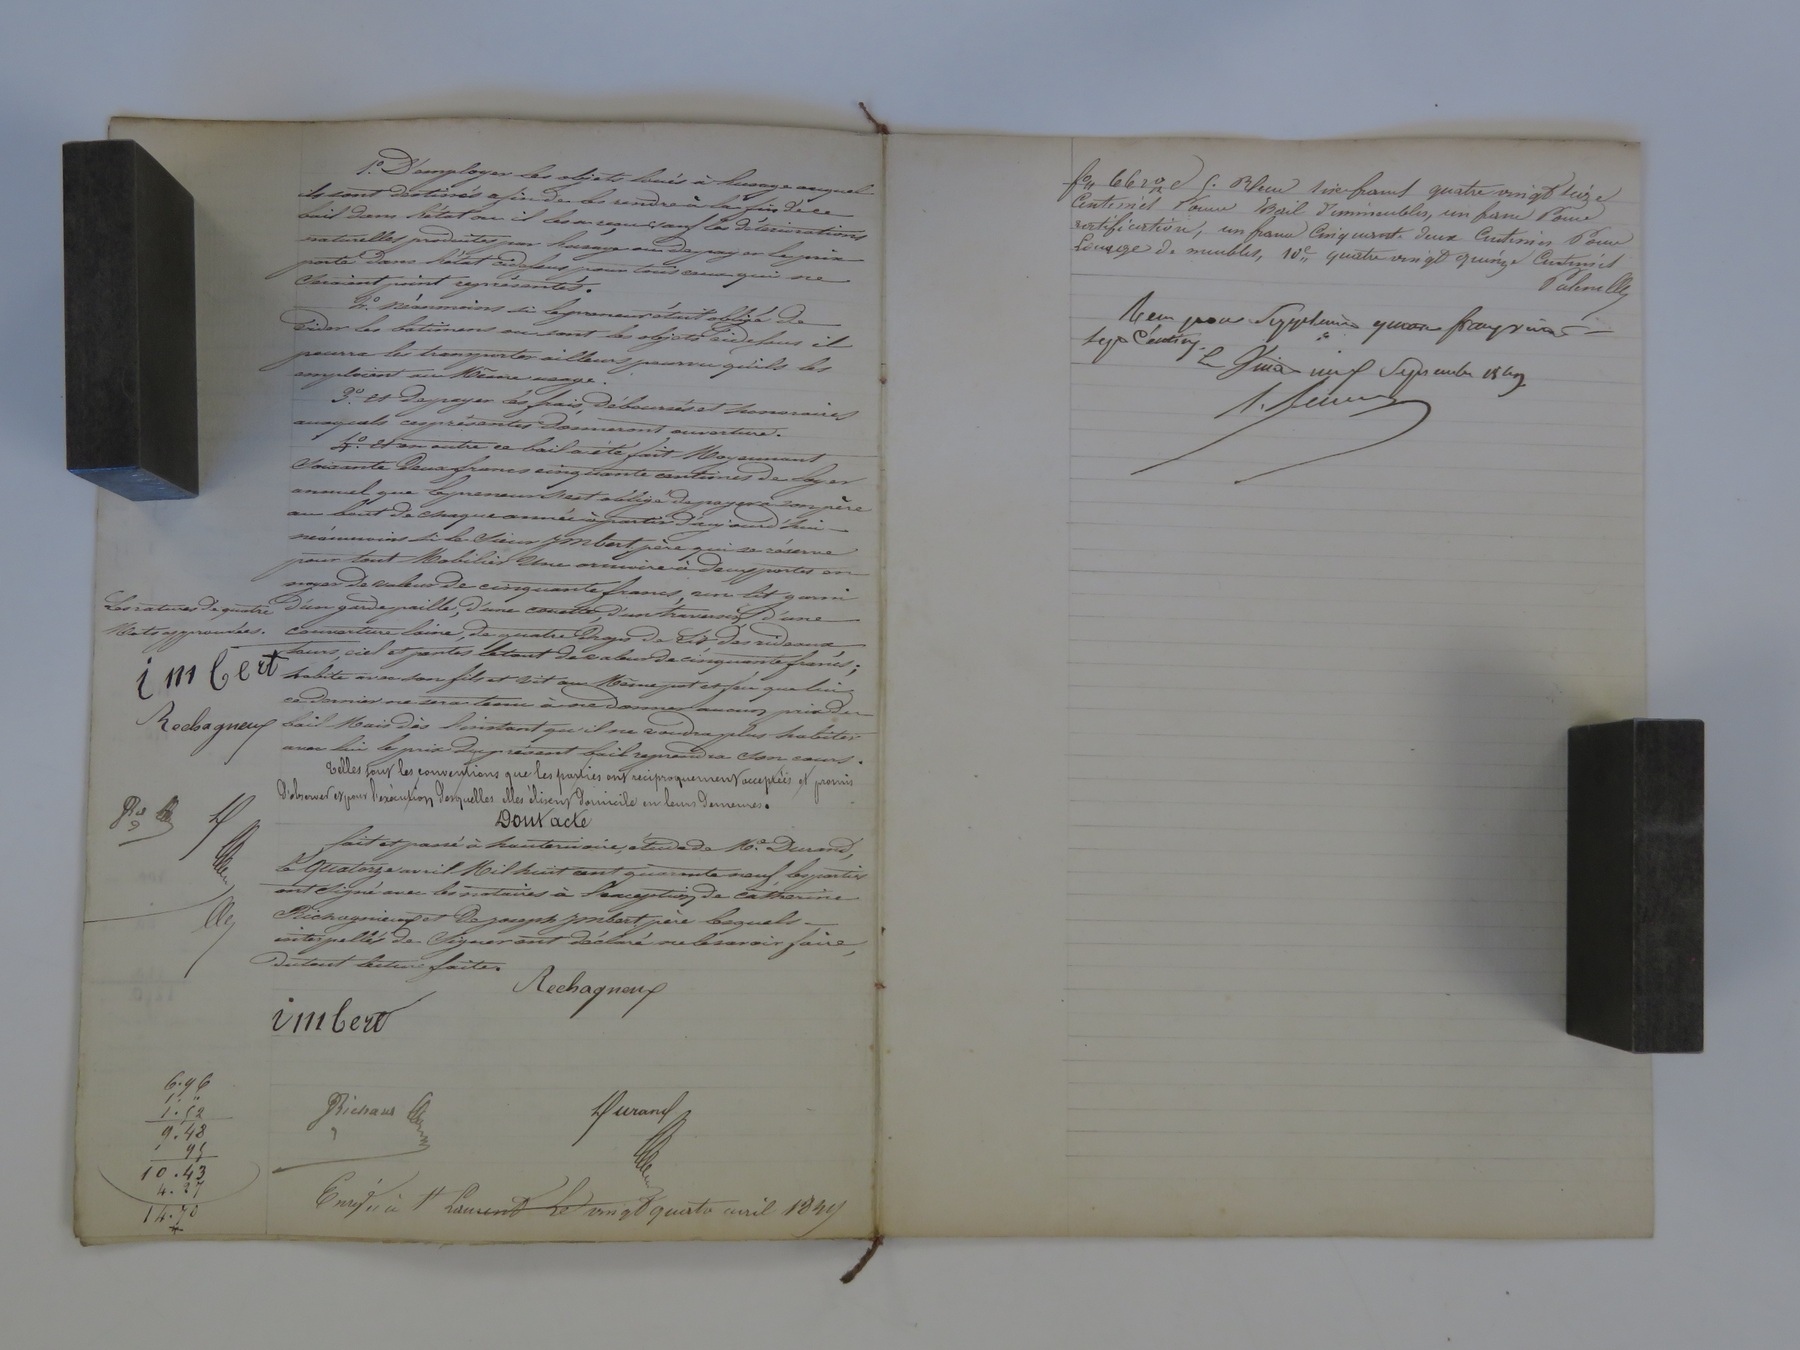 1.º D'employer les objets loués à l'usage auquel
ils sont destinés afin de les rendre à la fin de ce
bail dans l'état ou il les a reçus sauf les détériorations
naturelles produites par l'usage ou de payer le prix
porté dans l'état cidessus pour tous ceux qui ne
seraient point représentés.
2.º Néanmoins si le preneur était obligé de
vider les batimens ou sont les objets cidessus il
pourra les transporter ailleurs pourvu qu'ils les
emploient au même usage.
3.º et de payer les frais, déboursés et honoraires
auxquels ces présentes donneront ouverture.
4.º et en outre ce bail a été fait Moyennant
soixante deux francs cinquante centimes de loyer
annuel que le preneur s'est obligé de payer a son père
au bout de chaque année à partir d'aujourd'hui
néanmoins si le sieur ymbert père qui se réserve
pour tout Mobilier une armoire à deux portes en
noyer de valeur de cinquante francs, un lit garni
d'un garde paille, d'une couette, d'un traversin, d'une
couverture laine, de quatre Draps de Lit des rideaux
tours, ciel et pentes le tout de valeur de cinquante francs;
habite avec son fils et vit au Même pot et feu que lui
ce dernier ne sera tenu à ne donner aucun prix de
bail Mais dès l'instant qu'il ne voudra plus habiter
avec lui le prix du présent bail reprendra son cours.
Telles sont les conventions que les parties ont réciproquement acceptées et promis
d'observer et pour l'exécution desquelles elles élisent domicile en leurs demeures.
Dont acte
fait et passé à hauterivoire, étude de Me. Durand,
le Quatorze avril Mil huit cent quarante neuf les parties
ont signé avec les notaires à l'exception de Catherine
Richagneux et De joseph ymbert père lesquels
interpellés de signer ont déclaré ne le savoir faire,
du tout lecture faite.
Rechagneux
imbert
Richaud
Durand
Enregé à St Laurent Le vingt quatre avril 1849
Les ratures de quatre
Mots approuvées.
imbert
Rochagneux
6.96
1."
1.52
9.48
95
10.43
4.27
14.70
fo 66 ro c 5. Reçu six francs quatre vingt seize
Centimes Pour Bail d'immeubles, un franc Pour
certification, un franc Cinquante deux Centimes Pour
Louage de meubles, 10e quatre vingt quinze Centimes
Reçu pour Supplément quatre francs vingt
sept Centimes
Le septembre